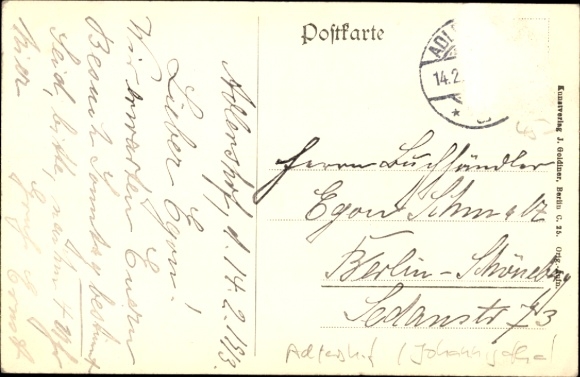 Postkarte
ADL
14.2.
Adlershof, d. 14.2.1913.
Lieber Egon!
Wir erwarten Euren
Besuch Sonntag bestimmt
Seid, bitte, um 4 Uhr
hier
Gruß Ernst
Herrn Buchhändler
Egon Schmalz
Berlin-Schöneberg
Sedanstr 73
Adlershof / Johannisthal
Kunstverlag J. Goldiner, Berlin C. 25. Orig.-Aufn.